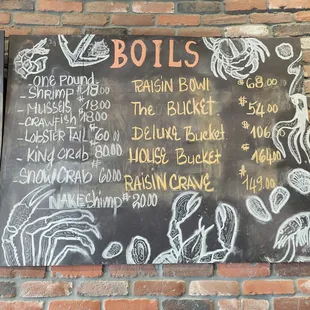 BOILS
ONE POUND
Shrimp $18.00
Mussels $18.00
Crawfish $18.00
Lobster Tail $60.00
King Crab $80.00
Snow Crab $60.00
NAKE Shrimp $20.00
RAISIN BOWL $68.00
The Bucket $54.00
Deluxe Bucket $106
HOUSE Bucket $164.00
RAISIN CRAVE $149.00